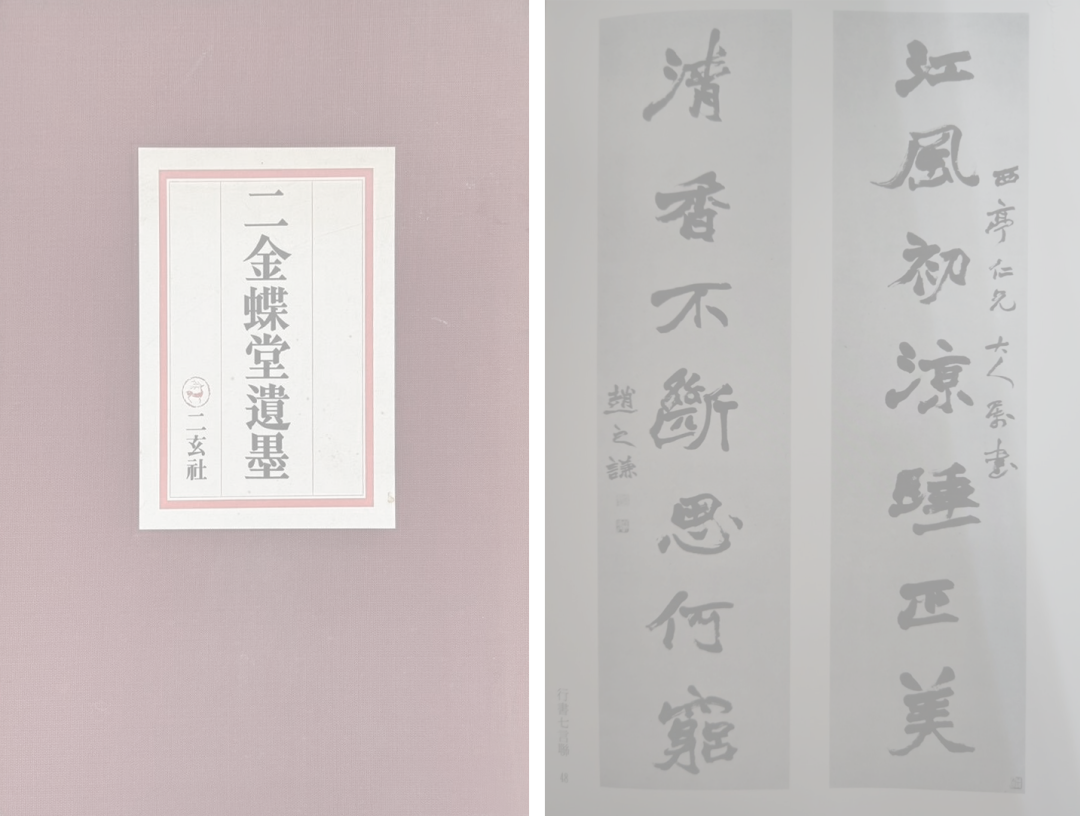 二金蝶堂遺墨
二玄社
西亭仁兄大人屬書
江風初涼睡正美
清香不斷思何窮
趙之謙